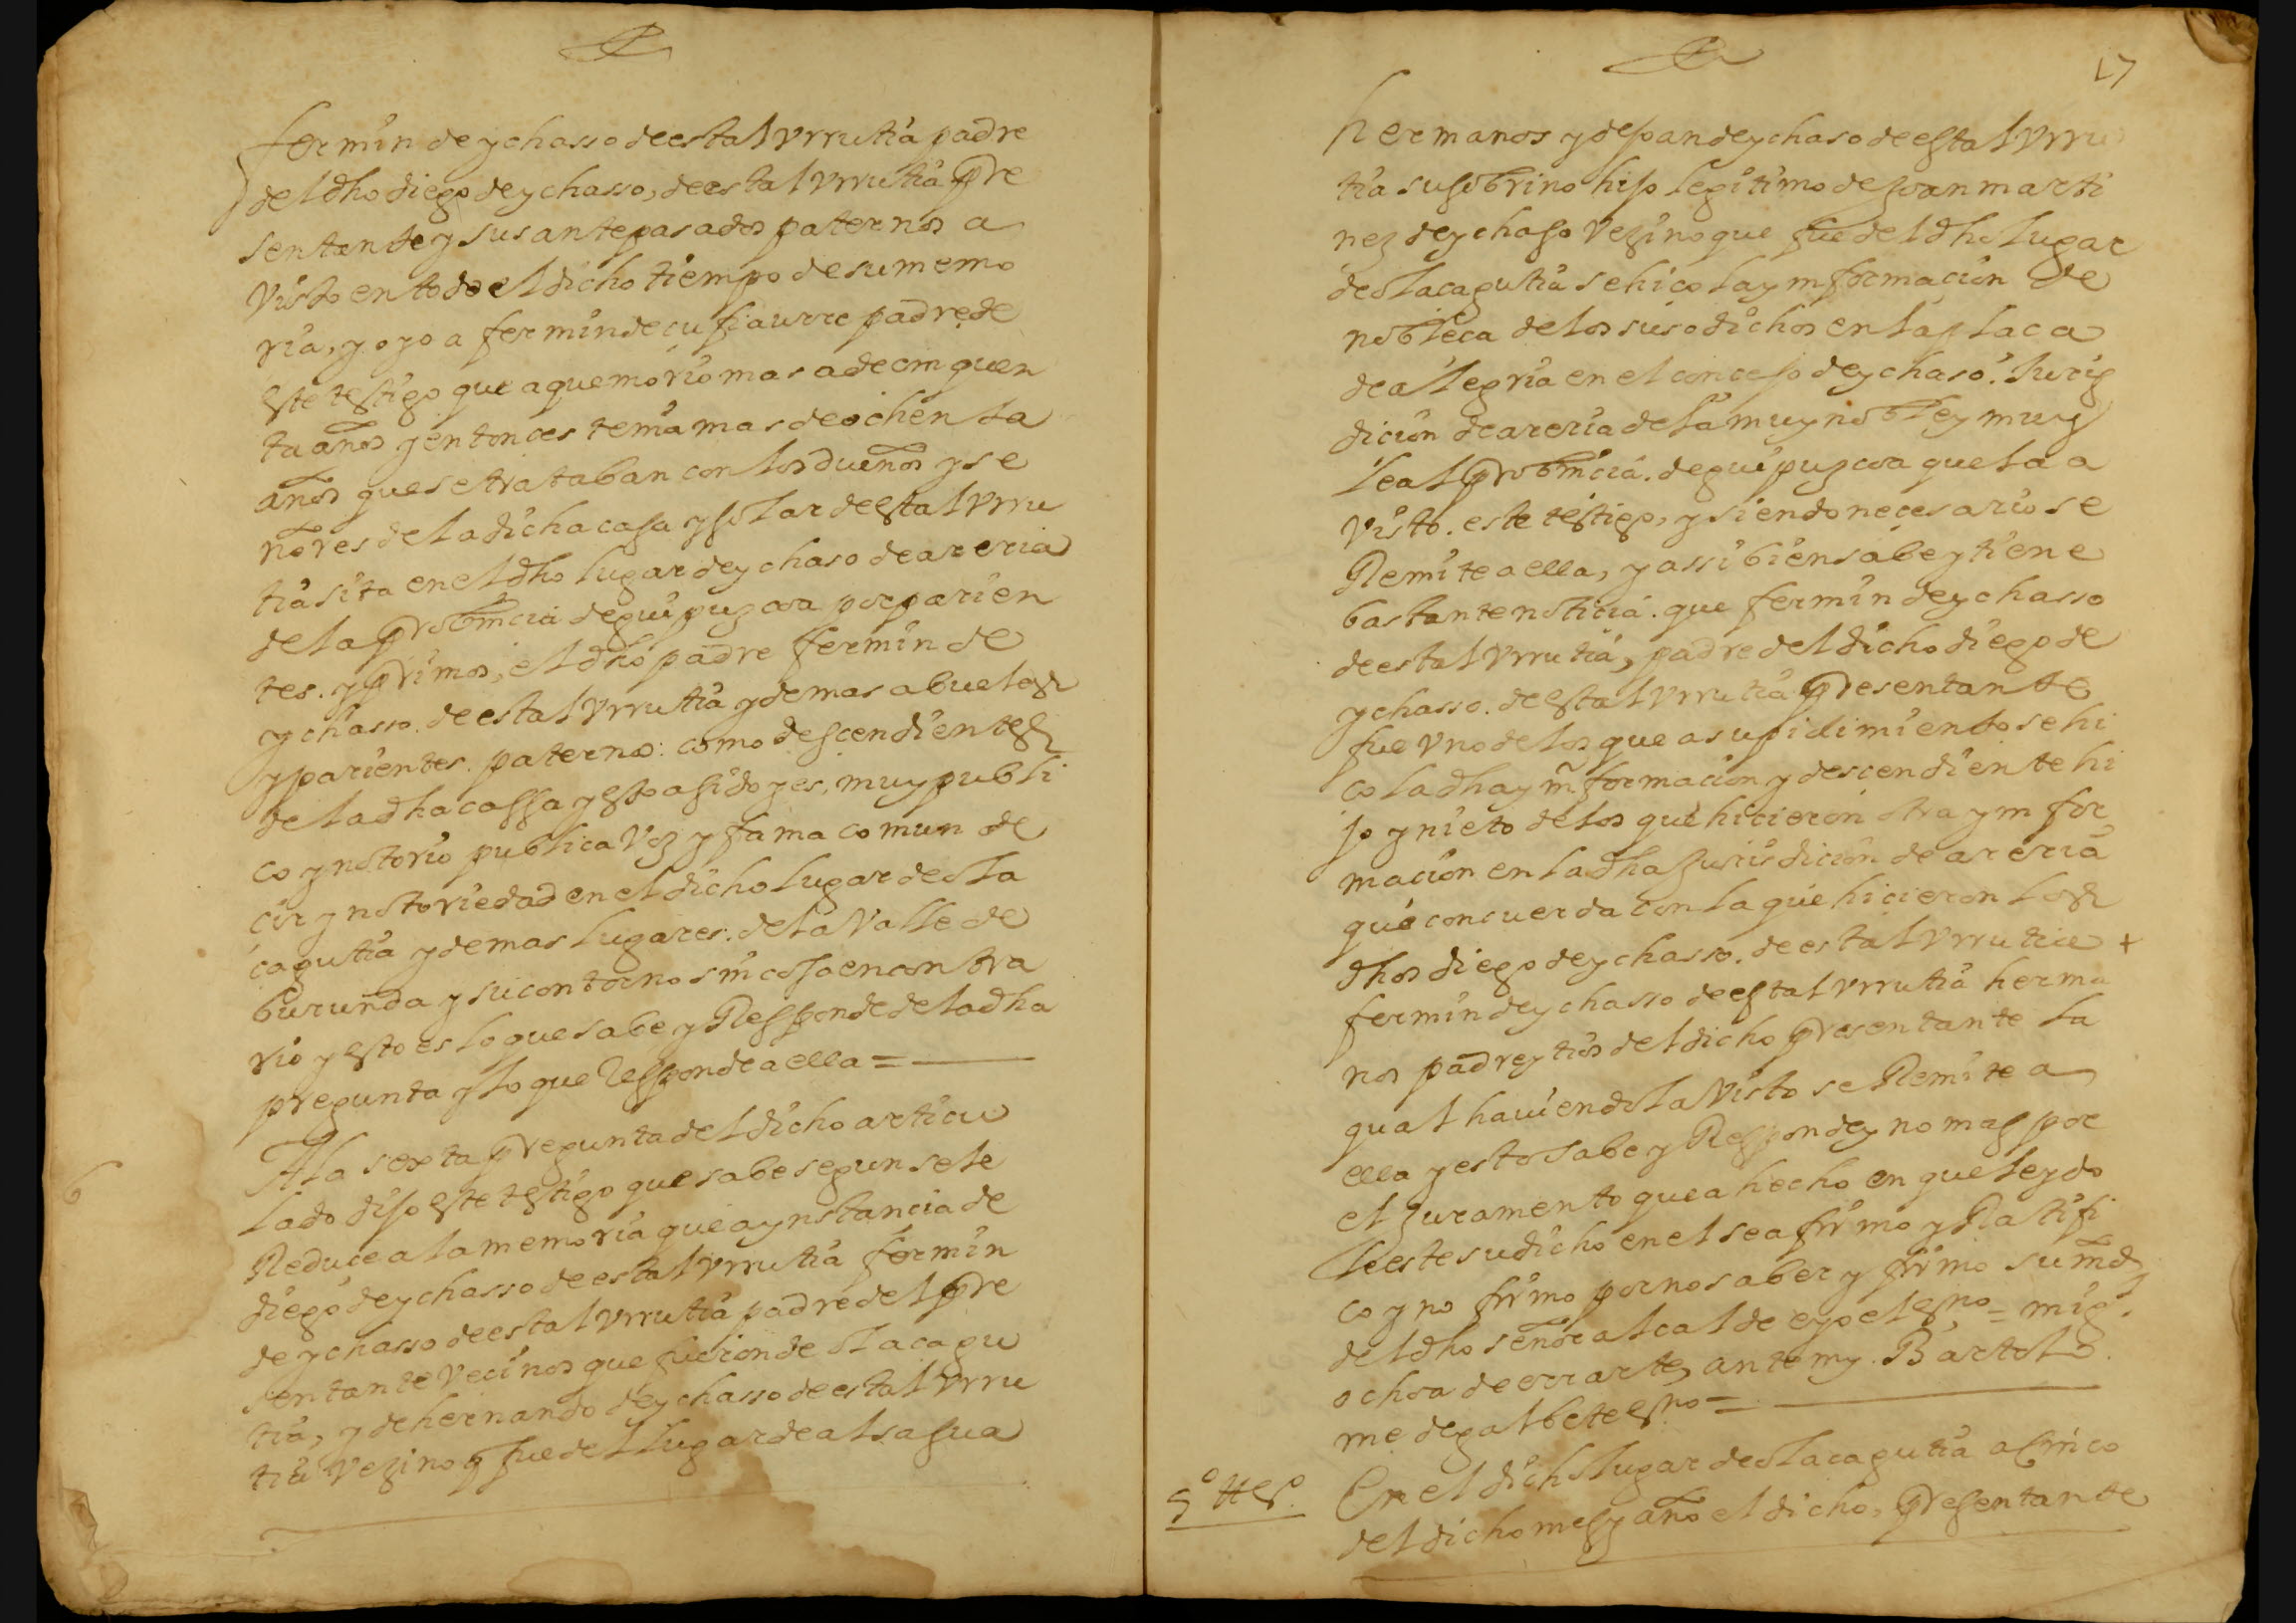 fermin de ychasso de estal Vrrutia padre
del dho diego de ychasso, de estal Vrrutia pre
sentante y sus antepasados paternos a
Visto en todo el dicho tiempo de su memo
ria, y oyo a fermin de çufiaurre padre de
este testigo que a que morio mas a de cinquen
ta años y entonces tenia mas de ochenta
años que se trataban con los dueños y se
ñores de la dicha casa y solar de estal Vrru
tia sita en el dho lugar de ychaso de areria
de la probincia de guipuzcoa por parien
tes. y primos, el dho padre fermin de
ychasso. de estal Vrrutia y demas abuelos
y parientes. paternos: como descendientes
de la dha cassa y esto a sido y es, muy publi
co y notorio publica Voz y fama comun de
cir y notoriedad en el dicho lugar de ola
çagutia y demas lugares. de la Valle de
burunda y su contorno sin cosa en contra
rio y esto es lo que sabe y Responde de la dha
pregunta y lo que Responde a ella =
6
A la sexta pregunta del dicho articu
lado dijo este testigo que sabe segun se le
Reduce a la memoria que a ynstancia de
diego de ychasso de estal Vrrutia fermin
de ychasso de estal Vrrutia padre del pre
sentante Vecinos que fueron de olaçagu
tia, y de hernando de ychasso de estal Vrru
tia Vezino q fue del lugar de alsasua
17
hermanos y de Juan de ychaso de estal Vrru
tia su sobrino hijo legitimo de Joan marti
nez de ychaso Vezino que fue del dho lugar
de olaçagutia se hiço la ynformacion de
nobleça de los suso dichos en la plaça
de alegria en el concejo de ychaso. Juris
dicion de areria de la muy noble y muy
leal probincia. de guipuzcoa que la a
Visto. este testigo, y siendo neçesario se
Remite a ella, y assi bien sabe y tiene
bastante noticia. que fermin de ychasso
de estal Vrrutia, padre del dicho diego de
ychasso. de estal Vrrutia presentante
fue Vno de los que a su pidimiento se hi
ço la dha ynformacion y descendiente hi
jo y nieto de los que hicieron otra ynfor
macion en la dha Jurisdicion de areria
que concuerda con la que hicieron los
dhos diego de ychasso. de estal Vrrutia +
fermin de ychasso de estal Vrrutia herma
nos padre y tios del dicho presentante la
qual hauiendola Visto se Remite a
ella y esto sabe y Responde y no mas por
el Juramento que a hecho en que leydo
le este su dicho en el se afirmo y Ratifi
co y no firmo por no saber y firmo su md
del dho señor alcalde e yo el essno = mig.l
ochoa de errarte, ante my. Bartolo
me de galbete essno =
5º tesº.
En el dicho lugar de olaçagutia a Cinco
del dicho mes y año el dicho, presentante